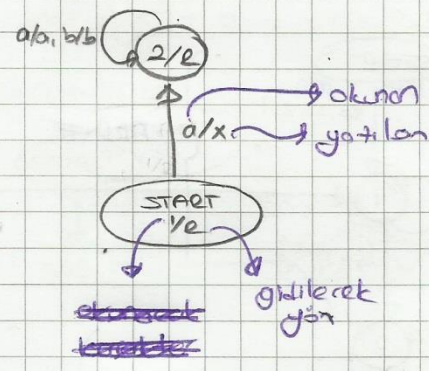 a/a, b/b
2/R
okunan
a/x
yazılan
START
1/R
gidilecek
yön